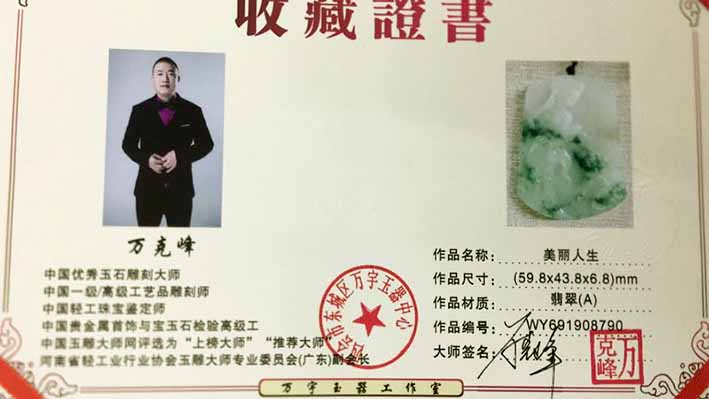 收藏證書
万克峰
中国优秀玉石雕刻大师
中国一级/高级工艺品雕刻师
中国轻工珠宝鉴定师
中国贵金属首饰与宝玉石检验高级工
中国玉雕大师网评选为“上榜大师” “推荐大师”
河南省轻工业行业协会玉雕大师专业委员会(广东)副会长
会市东城区万宇玉器中心
作品名称: 美丽人生
作品尺寸: (59.8x43.8x6.8)mm
作品材质: 翡翠(A)
作品编号: WY691908790
大师签名:
万克峰
万宇玉器工作室